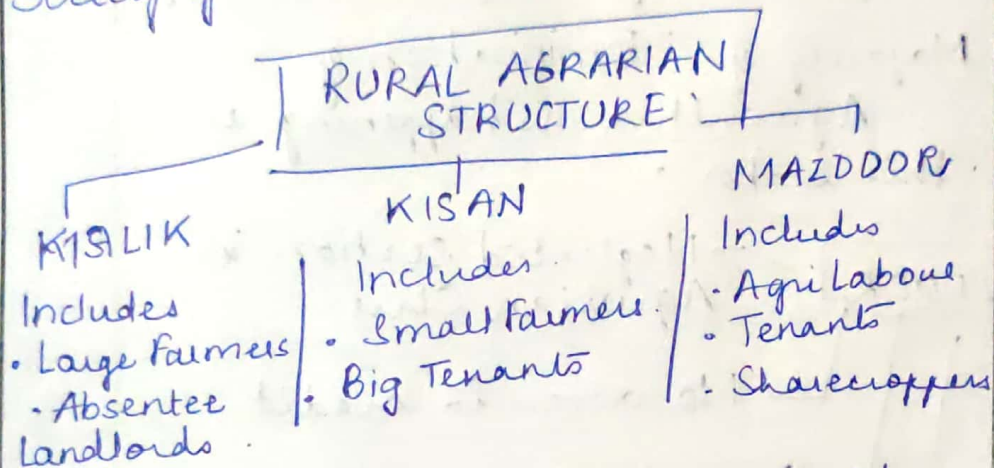 RURAL AGRARIAN
STRUCTURE
KISAN
MAZDDOR
Includes
• Large Farmers
• Absentee
Landlords
Includes
• Small Farmers
• Big Tenants
Includes
• Agri Labour
• Tenants
• Sharecroppers